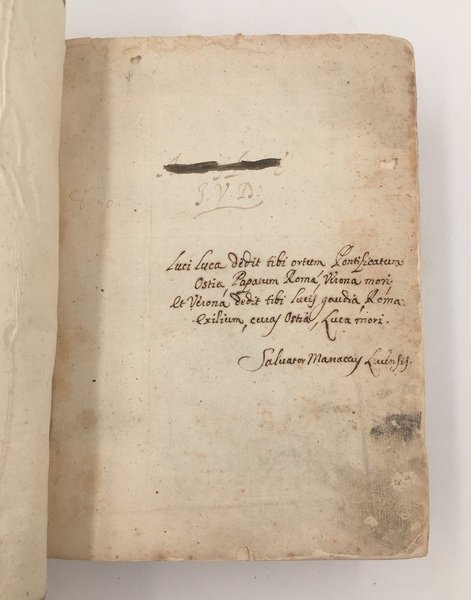 J. V. D.
Luci Luca dedit tibi ortum Pontificatum
Ostia Papatum Roma, Verona mori
et Verona dedit tibi lucis gaudia, Roma
exilium, curas Ostia, Luca mori.
Salvator